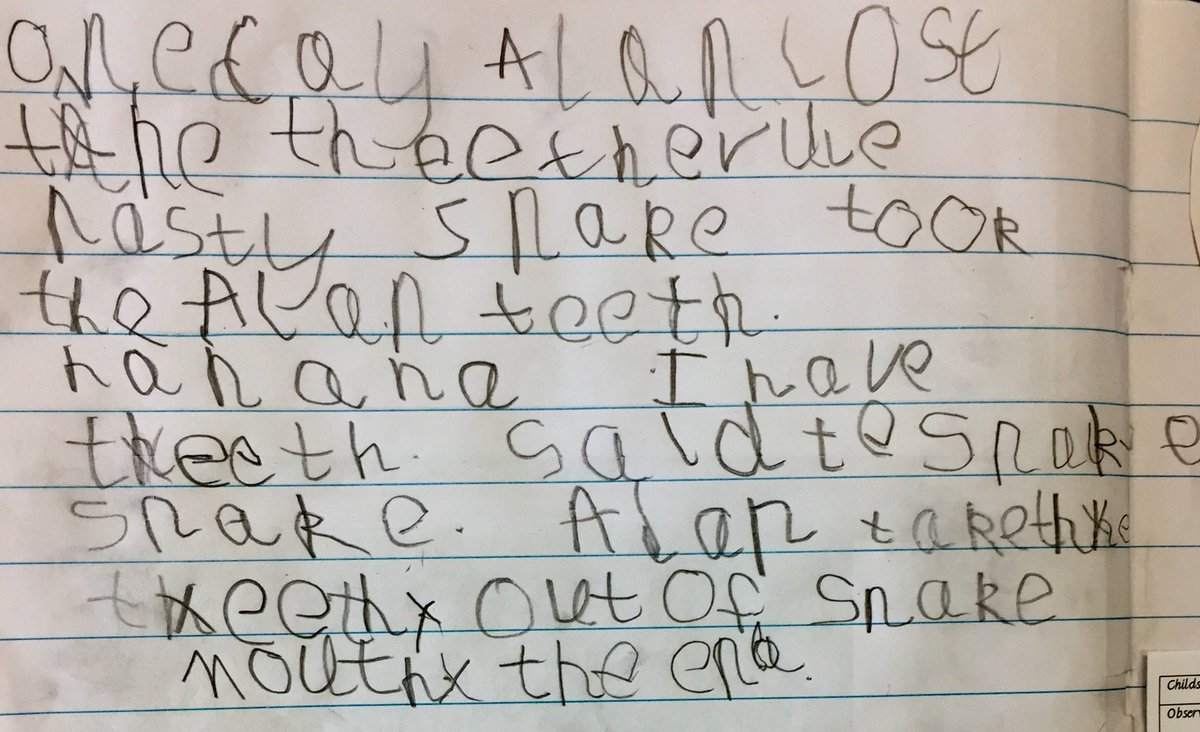 one day Alan Lost
the theeth erule
nasty snake took
the Alan teeth.
hahaha I have
teeth. said te snake
snake. Alan take the
teeth out of snake
mouth the end.
Childs
Obser